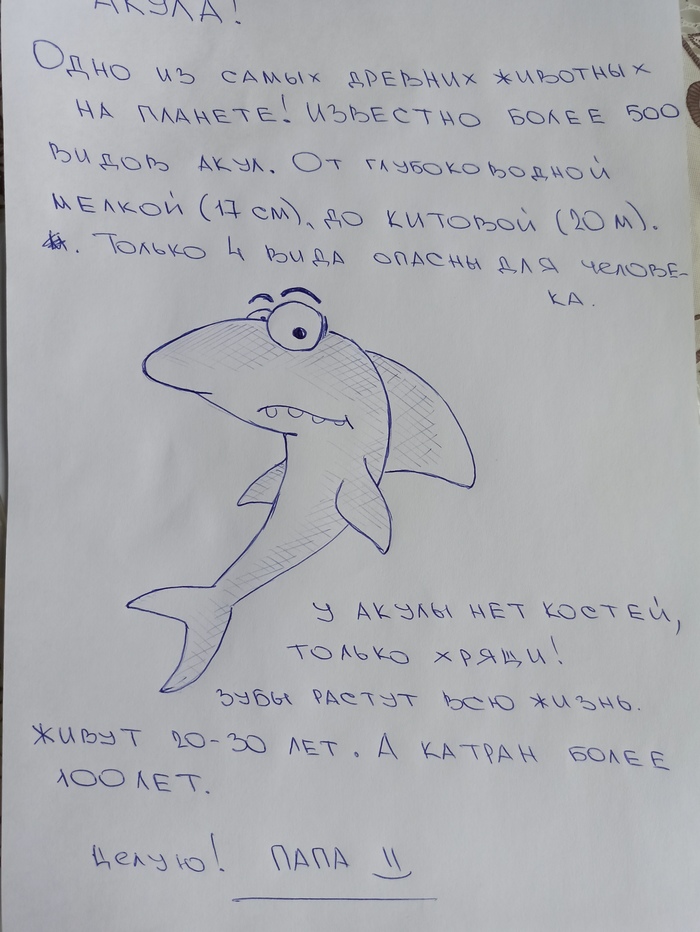 АКУЛА!
Одно из самых древних животных
на планете! Известно более 500
видов акул. От глубоководной
мелкой (17 см), до китовой (20 м).
. Только 4 вида опасны для челове-
ка.
У акулы нет костей,
только хрящи!
Зубы растут всю жизнь.
Живут 20-30 лет. А катран более
100 лет.
Целую! ПАПА